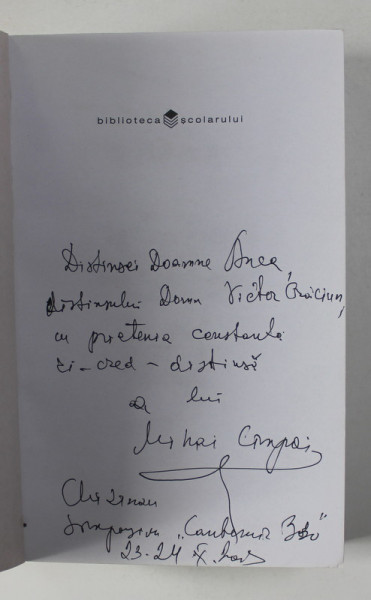 biblioteca școlarului
Distinsei Doamne Anca,
distinsului Domn Victor Crăciun,
cu prietenia constantă
și – cred – distinsă
a lui
Mihai Cimpoi
Chișinău
Simpozion „Cantemir
23-24 IX